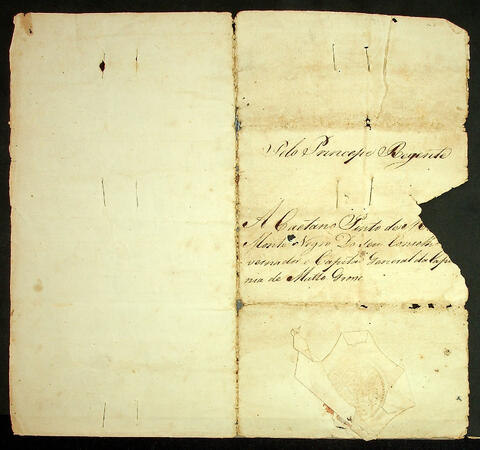 Pelo Principe Regente
A Caetano Pinto de
Monte Negro Do Seu Conselh
vernador e Capitaõ General da Capi
nia de Matto Grosso